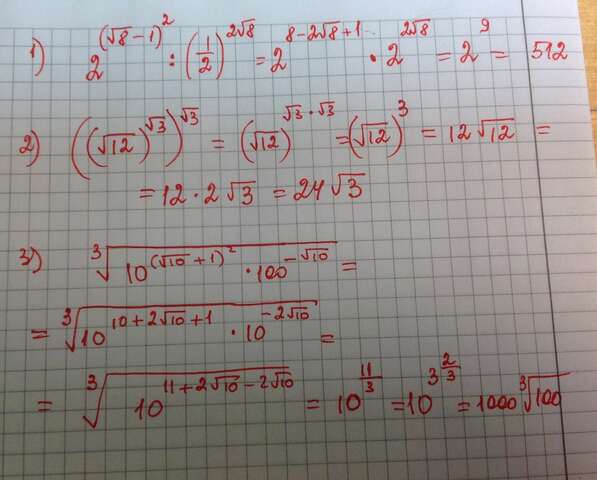 1) 2^(√8 - 1)² : (1/2)^2√8 = 2^8-2√8+1 · 2^2√8 = 2^9 = 512
2) ((√12)^√3)^√3 = (√12)^√3·√3 = (√12)^3 = 12√12 =
= 12·2√3 = 24√3
3) ∛(10^(√10+1)² · 100^-√10) =
= ∛(10^10+2√10+1 · 10^-2√10) =
= ∛(10^11+2√10-2√10) = 10^11/3 = 10^3 2/3 = 1000∛100